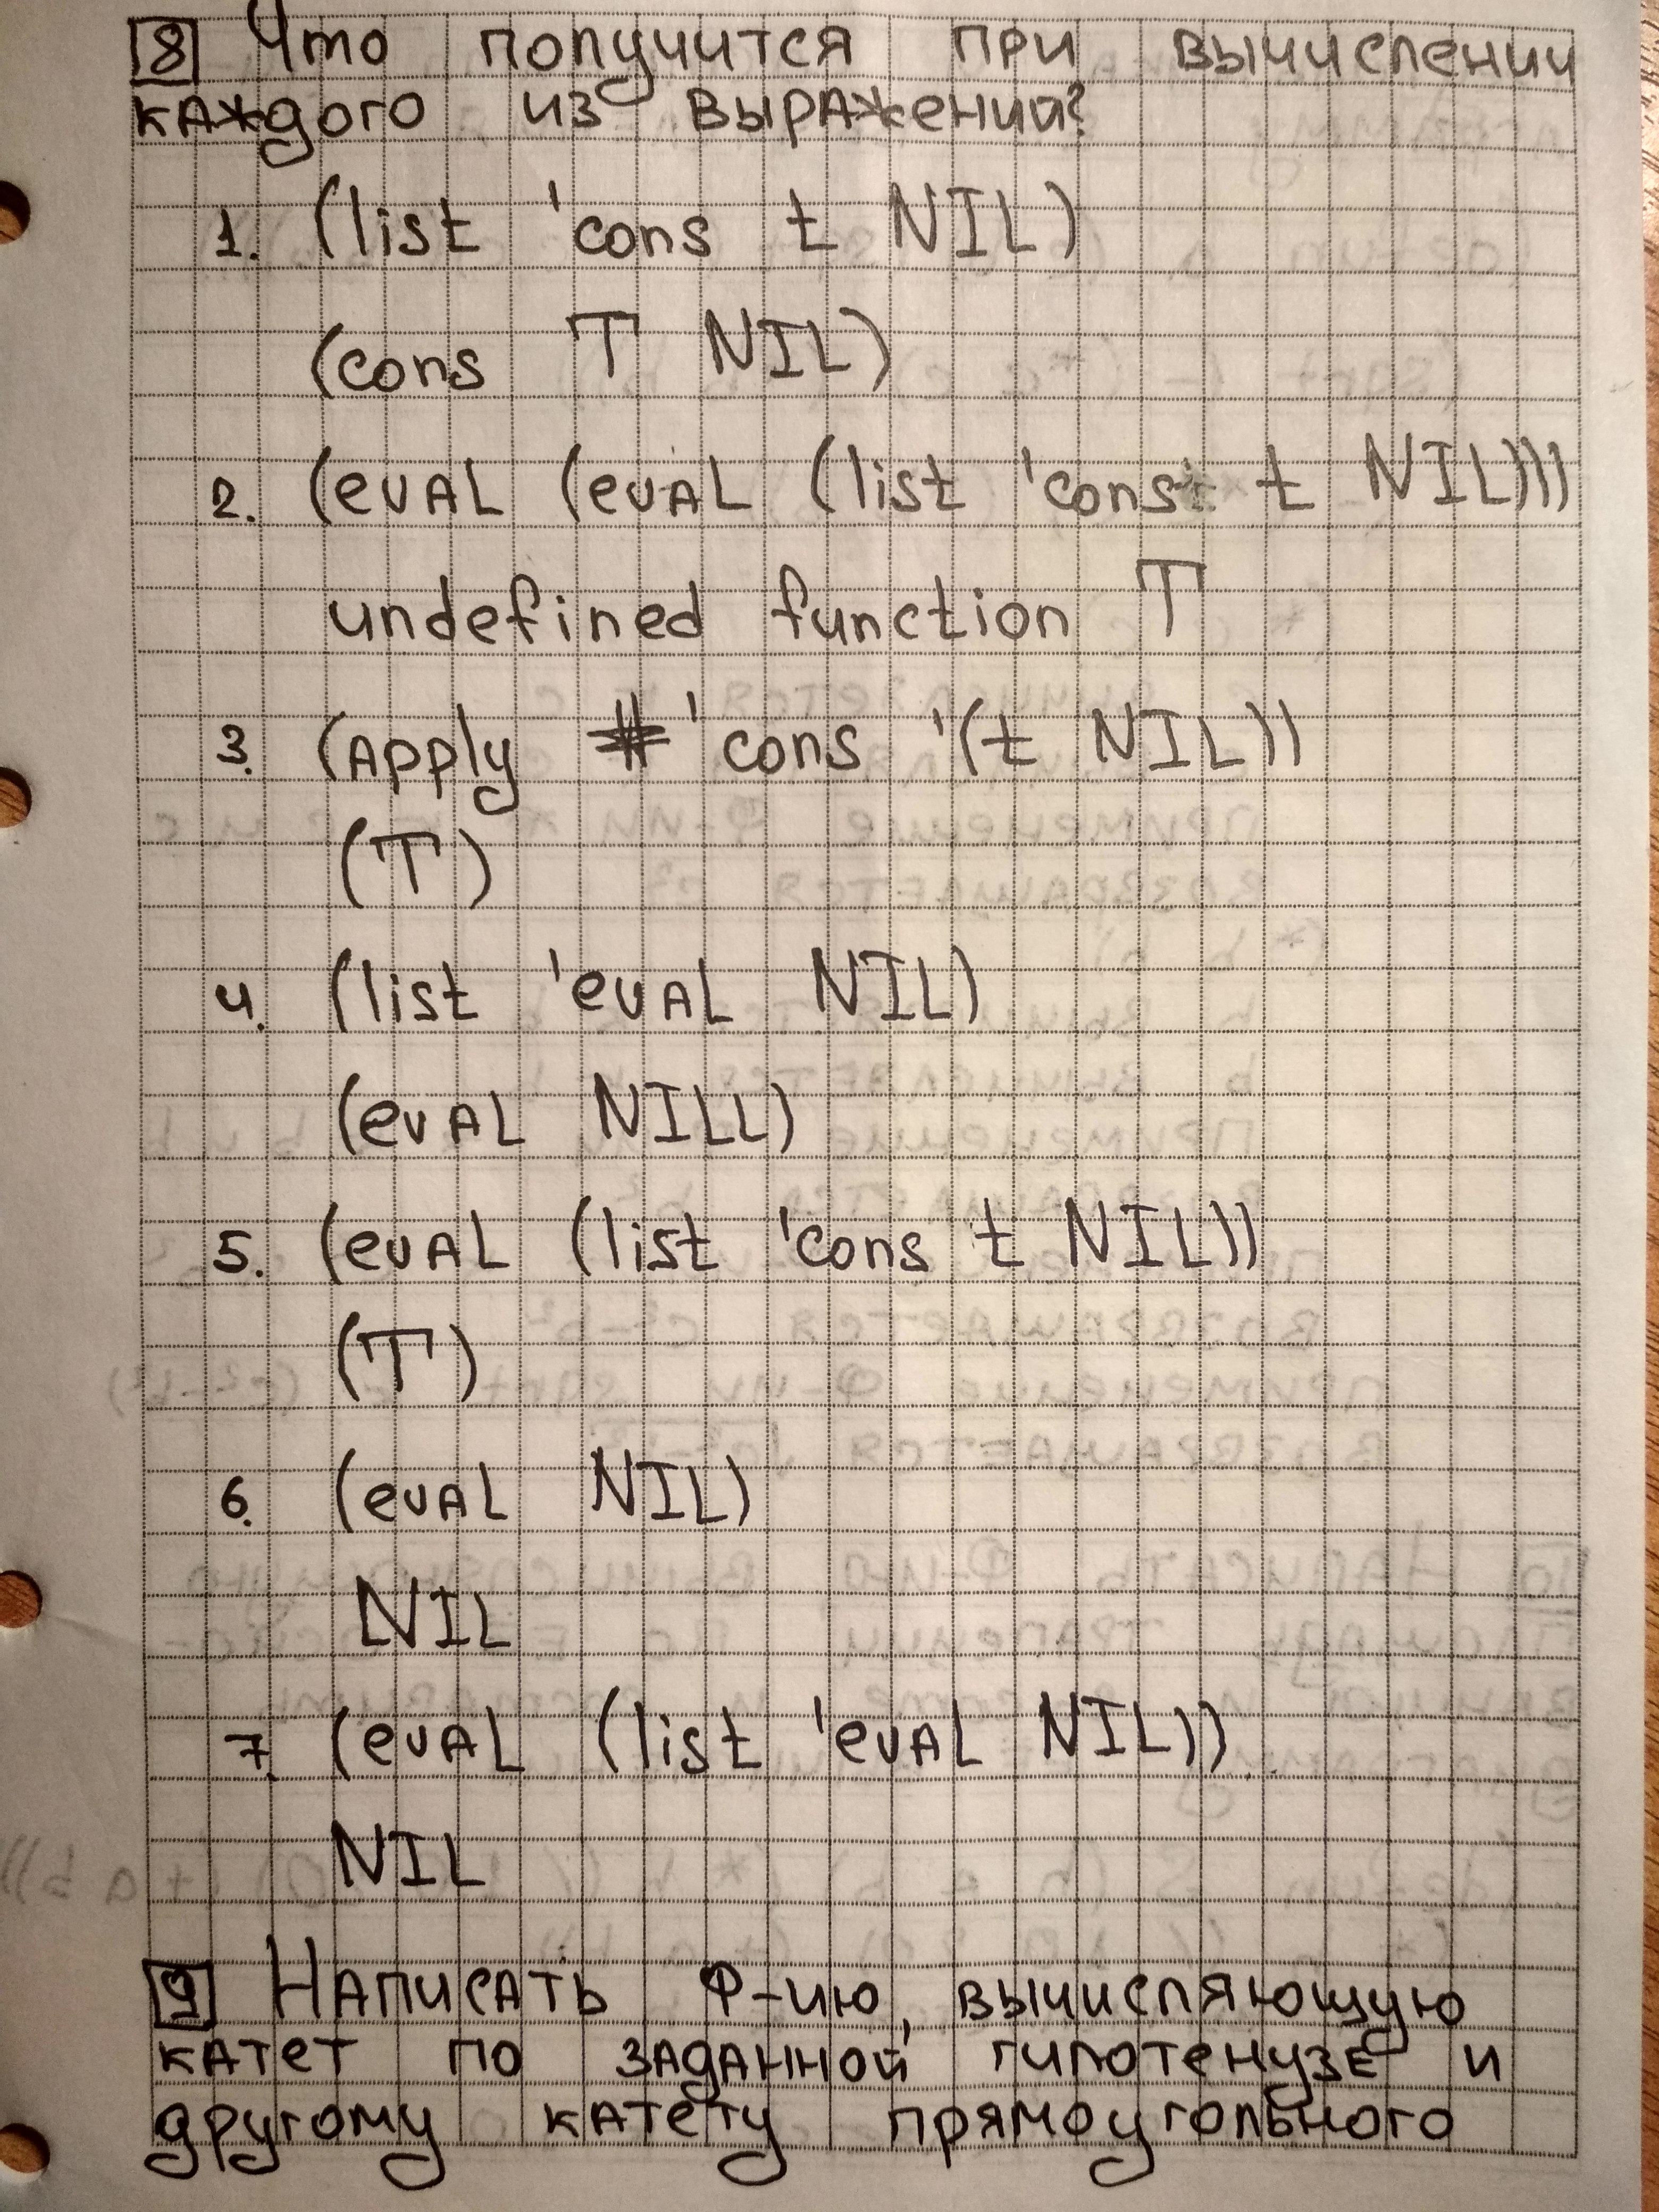 8 Что получится при вычислении
каждого из выражений?
1. (list 'cons t NIL)
(cons T NIL)
2. (eval (eval (list 'cons t NIL)))
undefined function T
3. (Apply #'cons '(t NIL))
(T)
4. (list 'eval NIL)
(eval NILL)
5. (eval (list 'cons t NIL))
(T)
6. (eval NIL)
NIL
7. (eval (list 'eval NIL))
NIL
9 Написать Ф-ию, вычисляющую
катет по заданной гипотенузе и
другому катету прямоугольного